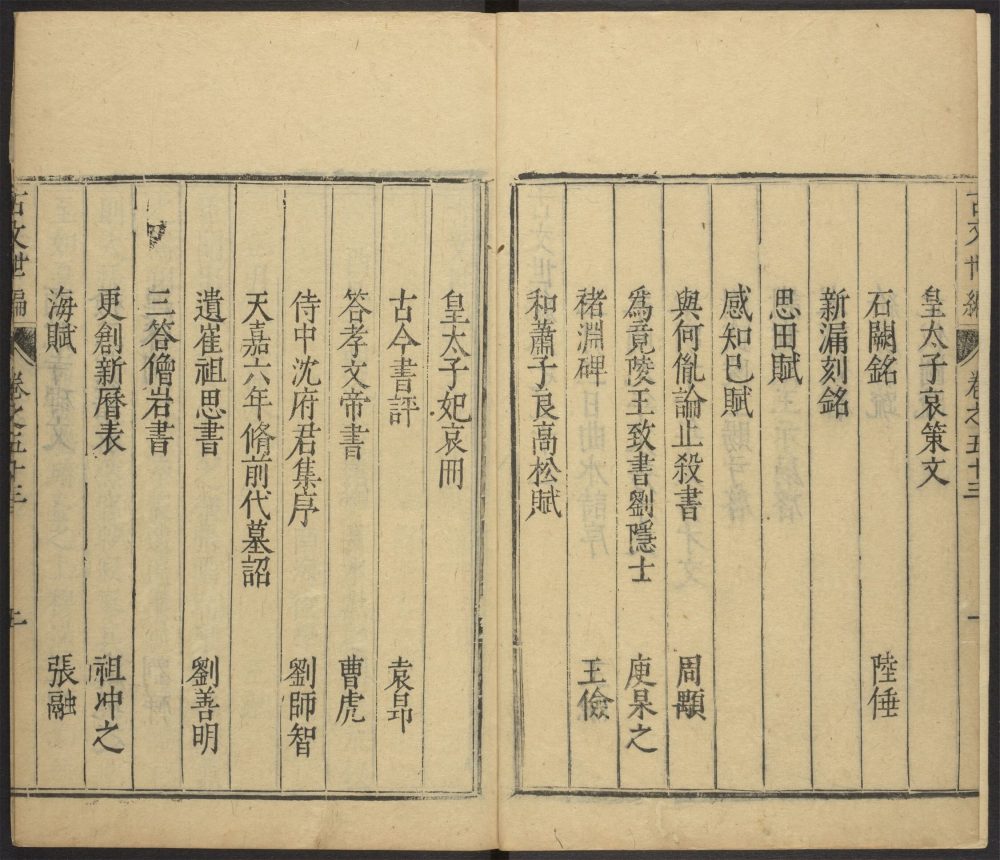 古文世編 卷之五十三 一
皇太子哀策文
石闕銘 陸倕
新漏刻銘
思田賦
感知己賦
與何胤論止殺書 周顒
爲竟陵王致書劉隱士 庾杲之
褚淵碑 王儉
和蕭子良高松賦
皇太子妃哀冊
古今書評 袁昂
答孝文帝書 曹虎
侍中沈府君集序 劉師智
天嘉六年脩前代墓詔
遺崔祖思書 劉善明
三答僧岩書
更創新曆表 祖冲之
海賦 張融
古文世編 卷之五十三